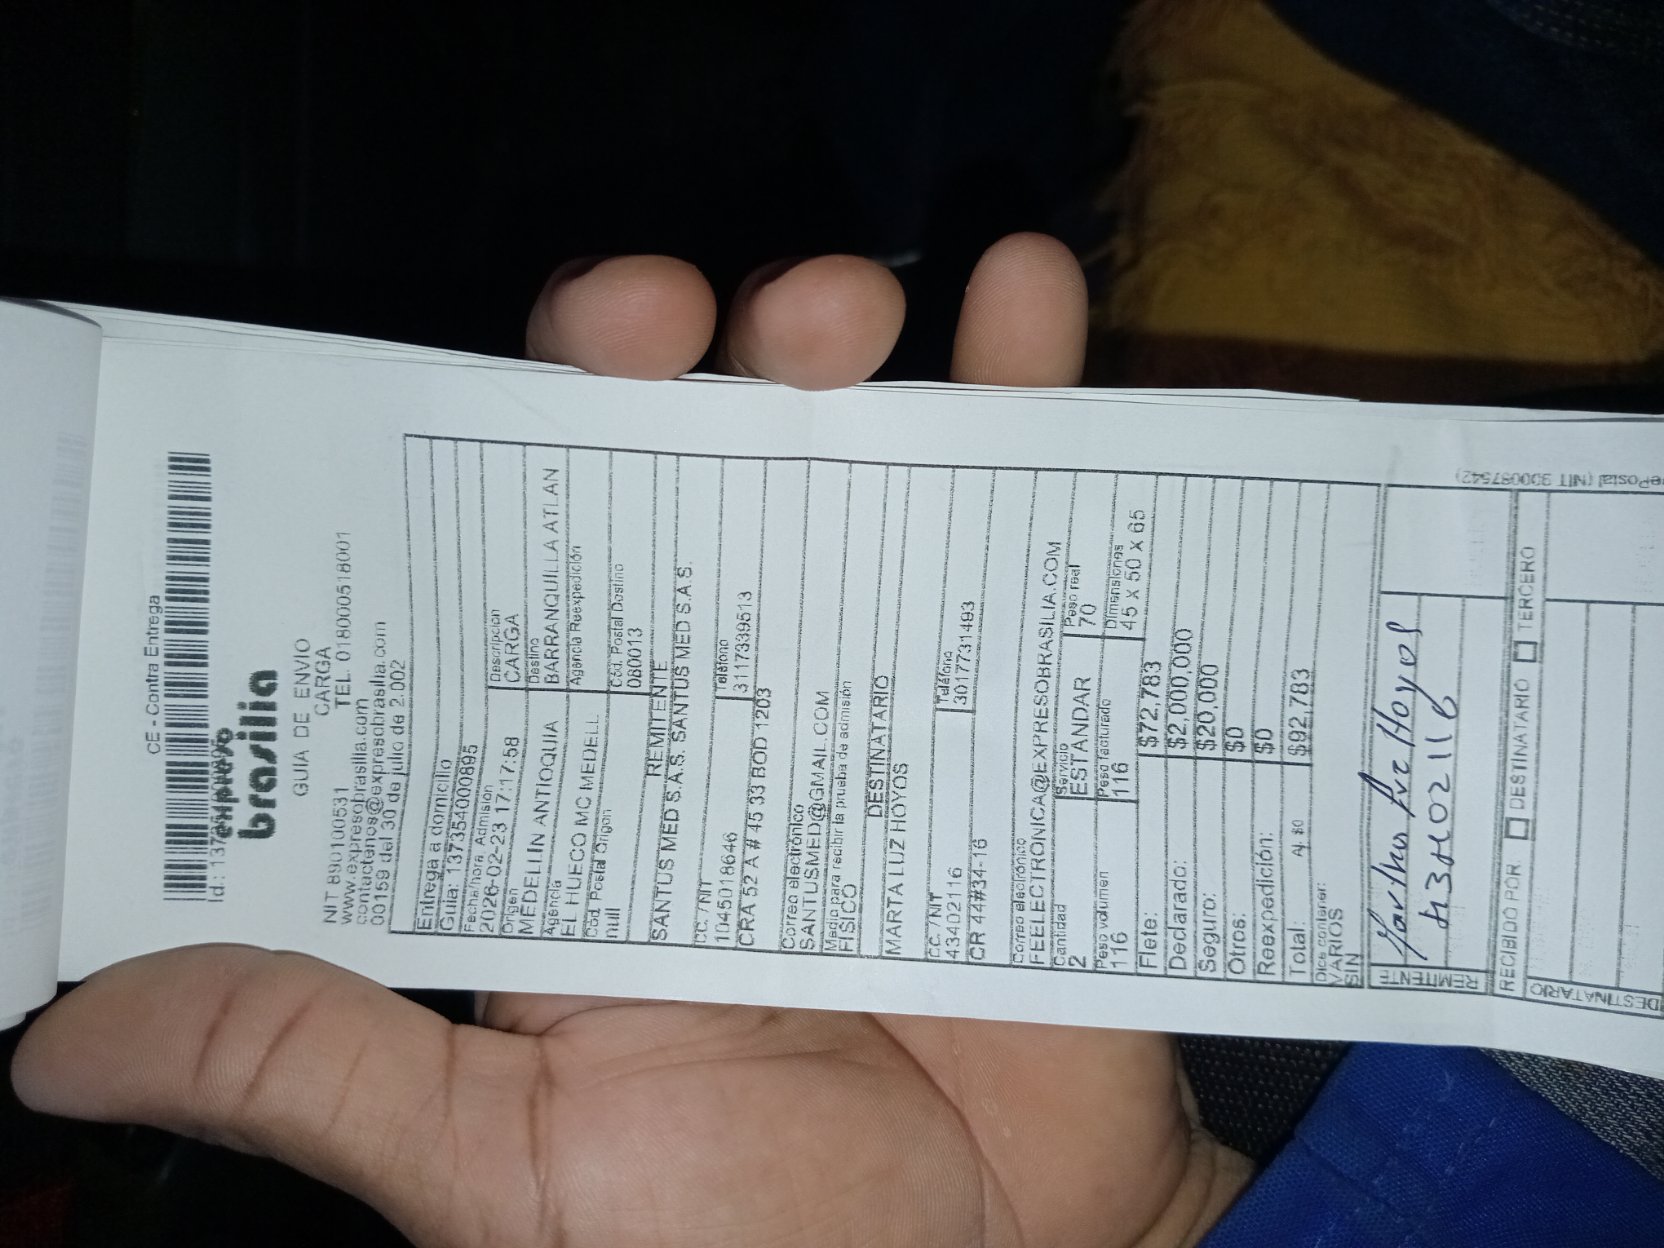 CE - Contra Entrega
expreso
brasilia
GUIA DE ENVIO
CARGA
NIT 890100531 TEL. 018000518001
www.expresobrasilia.com
contactenos@expresobrasilia.com
00159 del 30 de julio de 2.002
Entrega a domicilio
Guia: 137354000895
Fecha/hora Admisión Descripción
2026-02-23 17:17:58 CARGA
Origen Destino
MEDELLIN ANTIOQUIA BARRANQUILLA ATLAN
Agencia Agencia Reexpedición
EL HUECO MC MEDELL
Cód. Postal Origen Cód. Postal Destino
null 080013
REMITENTE
SANTUS MED S.A.S. SANTUS MED S.A.S.
CC. / NIT Teléfono
1045018646 3117339513
CRA 52 A # 45 33 BOD 1203
Correo electrónico
SANTUSMED@GMAIL.COM
Medio para recibir la prueba de admisión
FISICO
DESTINATARIO
MARTA LUZ HOYOS
CC. / NIT Teléfono
43402116 3017731493
CR 44#34-16
Correo electrónico
FEELECTRONICA@EXPRESOBRASILIA.COM
Cantidad Servicio Peso real
2 ESTANDAR 70
Peso volumen Peso facturado Dimensiones
116 116 45 X 50 X 65
Flete: $72,783
Declarado: $2,000,000
Seguro: $20,000
Otros: $0
Reexpedición: $0
Total: $92,783
Dice contener:
VARIOS
SIN
REMITENTE
Hoyos
RECIBIDO POR: DESTINATARIO TERCERO
DESTINATARIO